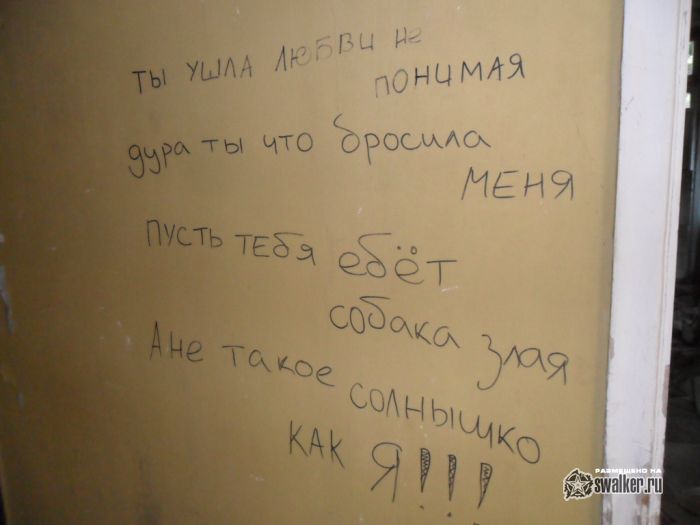 ты ушла любви не
понимая
дура ты что бросила
меня
пусть тебя ебёт
собака злая
А не такое
солнышко
как Я!!!
РАЗМЕЩЕНО НА
swalker.ru